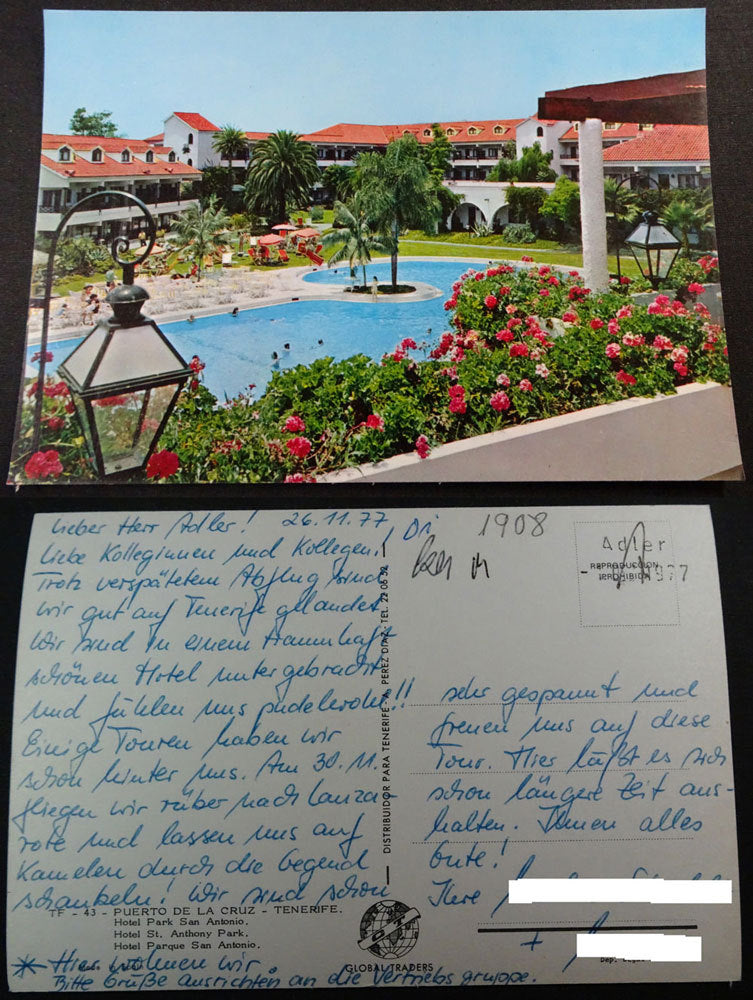 Lieber Herr Adler! 26.11.77
Liebe Kolleginnen und Kollegen!
Trotz verspätetem Abflug sind
wir gut auf Tenerife gelandet
Wir sind in einem traumhaft
schönen Hotel untergebracht
und fühlen uns pudelwohl!!
Einige Touren haben wir
schon hinter uns. Am 30.11.
fliegen wir rüber nach Lanza-
rote und lassen uns auf
Kamelen durch die Gegend
schaukeln! Wir sind schon
TF - 43 - PUERTO DE LA CRUZ - TENERIFE.
Hotel Park San Antonio.
Hotel St. Anthony Park.
Hotel Parque San Antonio.
* Hier wohnen wir
Bitte Grüße ausrichten an die Vertriebsgruppe.
DISTRIBUIDOR PARA TENERIFE - A. PEREZ DIAZ - TEL. 22 06 52
GLOBAL TRADERS
Di
1908
Adler
REPRODUCCION
PROHIBIDA
1977
sehr gespannt und
freuen uns auf diese
Tour. Hier läßt es sich
schon längere Zeit aus-
halten. Ihnen alles
Gute!
Ihre
+
Dep. Legal